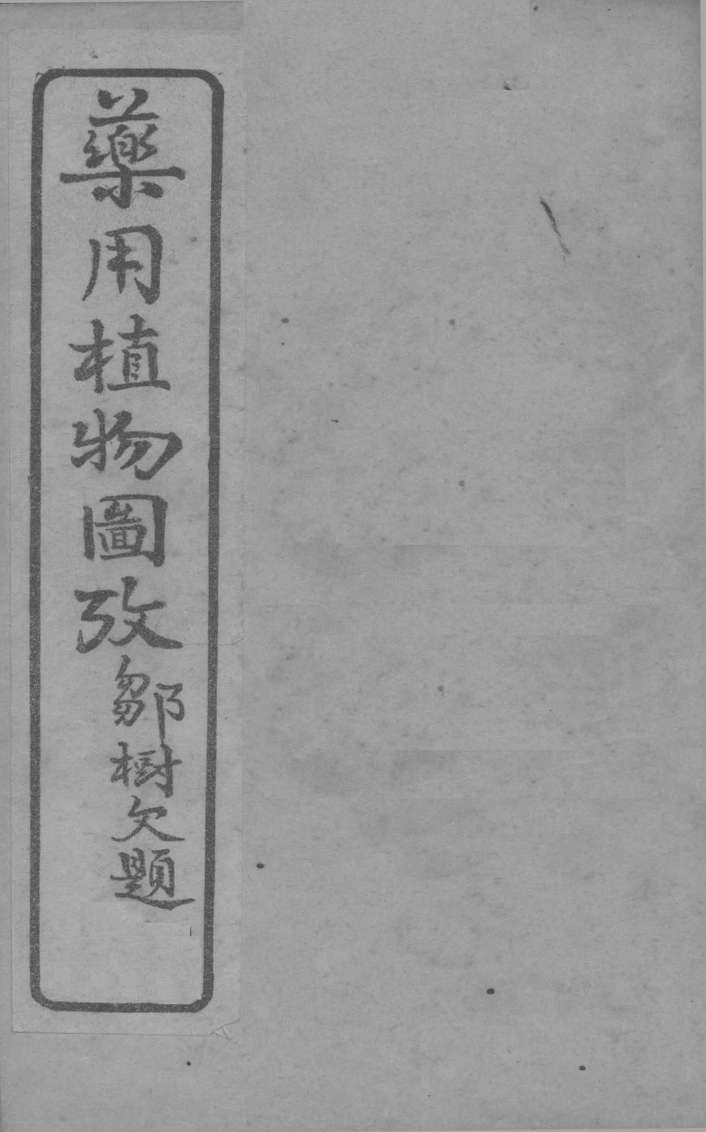 藥用植物圖攷
鄒樹文題